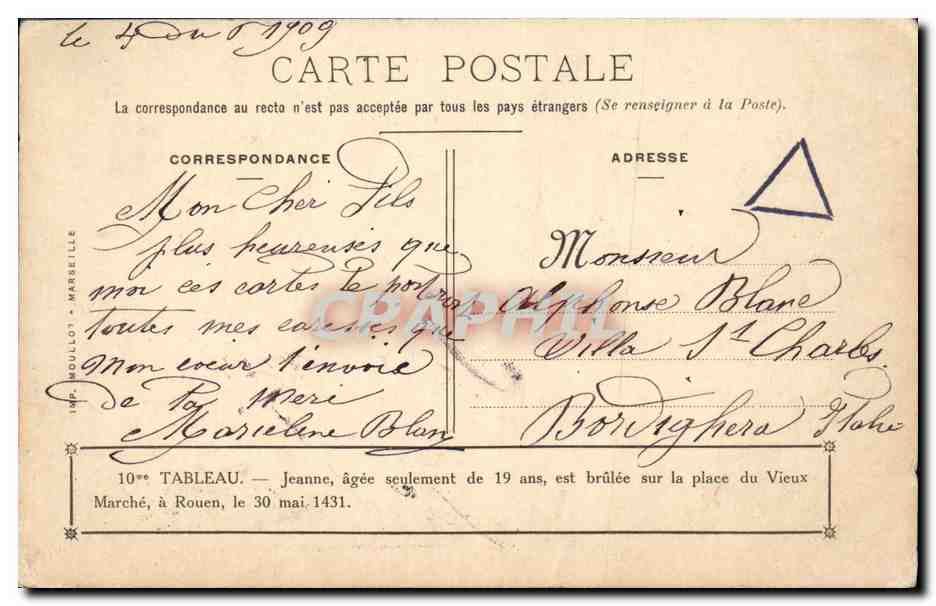 le 4 du 6 1909
CARTE POSTALE
La correspondance au recto n'est pas acceptée par tous les pays étrangers (Se renseigner à la Poste).
CORRESPONDANCE
Mon Cher Fils
plus heureuses que
moi ces cartes te porteront
toutes mes caresses que
mon coeur t'envoie
de ta mere
Blanc
ADRESSE
Monsieur
Alphonse Blanc
Villa St Charles
Bordighera Italie
IMP. MOULLOT - MARSEILLE
CPARAMA
CRAPHIL
10me TABLEAU. — Jeanne, âgée seulement de 19 ans, est brûlée sur la place du Vieux
Marché, à Rouen, le 30 mai 1431.